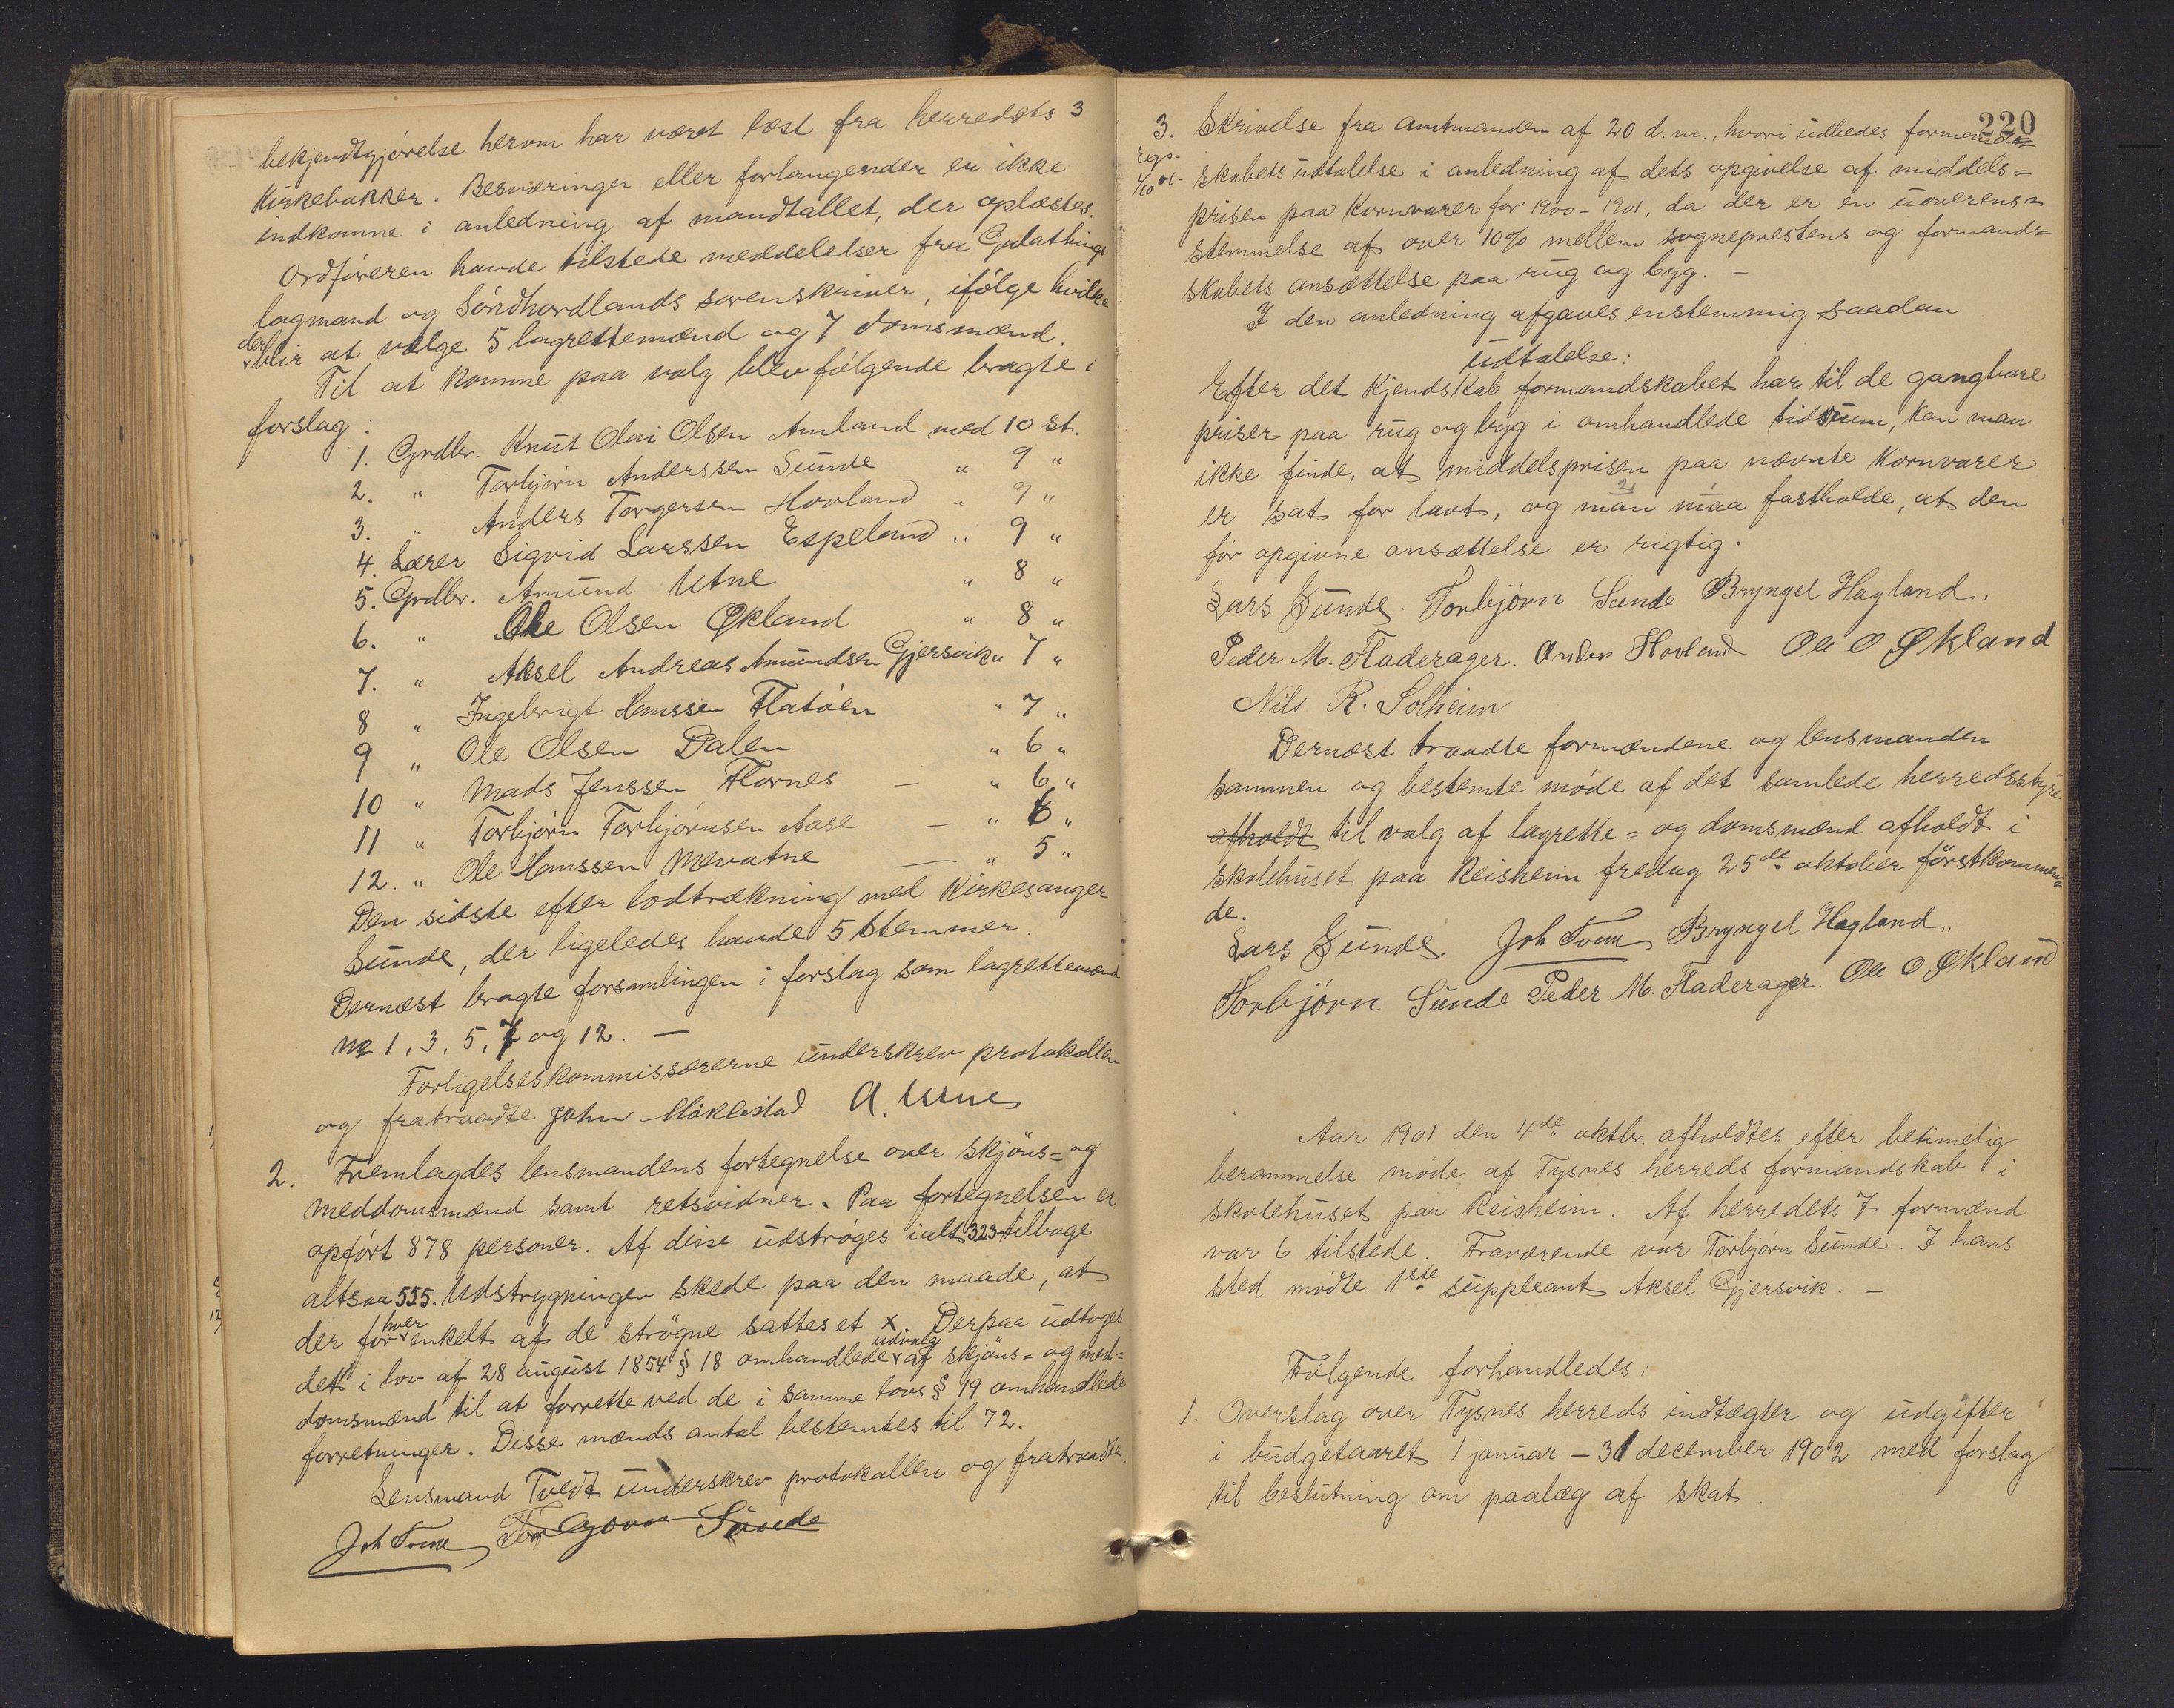 bekjendtgjørelse herom har været læst fra herredets 3
Kirkebakker. Besværinger eller forlangender er ikke
indkomne i anledning af mandtallet, der oplæstes.
Ordføreren havde tilstede meddelelser fra Gulathings
lagmand og Søndhordlands sorenskriver, ifølge hvilke
der blir at vælge 5 lagrettemænd og 7 domsmænd.
Til at komme paa valg blev følgende bragte i
forslag:
1. Grdbr. Knut Olai Olsen Amland med 10 st.
2. " Torbjørn Anderssen Sunde " 9 "
3. " Anders Torgersen Hovland " 9 "
4. Lærer Sigvid Larssen Espeland " 9 "
5. Grdbr. Amund Utne " 8 "
6. " Ole Olsen Økland " 8 "
7. " Aksel Andreas Amundsen Gjersvik " 7 "
8 " Ingebrigt Hanssen Flatøen " 7 "
9 " Ole Olsen Dalen " 6 "
10 " Mads Jenssen Flornes — " 6 "
11 " Torbjørn Torbjørnsen Aase — " 6 "
12. " Ole Hanssen Mevatne — " 5 "
Den sidste efter lodtrækning med Kirkesanger
Sunde, der ligeledes havde 5 stemmer.
Dernæst bragte forsamlingen i forslag som lagrettemænd
No 1, 3, 5, 7 og 12. —
Forligelseskommissærerne underskrev protokollen
og fratraadte John Møklestad A. Utne
2. Fremlagdes lensmandens fortegnelse over skjøns= og
meddomsmænd samt retsvidner. Paa fortegnelsen er
opført 878 personer. Af disse udstrøges ialt 323 tilbage
altsaa 555. Udstrygningen skede paa den maade, at
der for hver enkelt af de strøgne sattes et x. Derpaa udtoges
det i lov af 28 august 1854 § 18 omhandlede udvalg af skjøns= og med=
domsmænd til at forrette ved de i samme lovs § 19 omhandlede
forretninger. Disse mænds antal bestemtes til 72.
Lensmand Tvedt underskrev protokollen og fratraadte.
Joh Tvedt Torbjørn Sunde
220
3. Skrivelse fra amtmanden af 20 d.m., hvori udbedes formand=
regs.
4/10 01. skabets udtalelse i anledning af dets opgivelse af middels=
prisen paa Kornvarer for 1900 – 1901, da der er en uoverens=
stemmelse af over 10% mellem sogneprestens og formands=
skabets ansættelse paa rug og byg. –
I den anledning afgaves enstemmig saadan
udtalelse:
Efter det Kjendskab formandskabet har til de gangbare
priser paa rug og byg i omhandlede tidsrum, kan man
ikke finde, at middelsprisen paa nævnte Kornvarer
er sat for lavt, og man maa fastholde, at den
før opgivne ansættelse er rigtig.
Lars Sunde. Torbjørn Sunde Bryngel Hagland.
Peder M. Fladerager. Anders Hovland Ole O Økland
Nils R. Solheim
Dernæst traadte formændene og lensmanden
sammen og bestemte møde af det samlede herredsstyre
afholdt til valg af lagrette= og domsmænd afholdt i
skolehuset paa Reisheim fredag 25de oktober førstkommen=
de.
Lars Sunde. Joh Tvedt Bryngel Hagland.
Torbjørn Sunde Peder M. Fladerager. Ole O Økland
Aar 1901 den 4de oktbr. afholdtes efter betimelig
berammelse møde af Tysnes herreds formandskab i
skolehuset paa Reisheim. Af herredets 7 formænd
var 6 tilstede. Fraværende var Torbjørn Sunde. I hans
sted mødte 1ste suppleant Aksel Gjersvik. –
Følgende forhandledes:
1. Overslag over Tysnes herreds indtægter og udgifter
i budgetaaret 1 januar – 31 december 1902 med forslag
til beslutning om paalæg af skat.